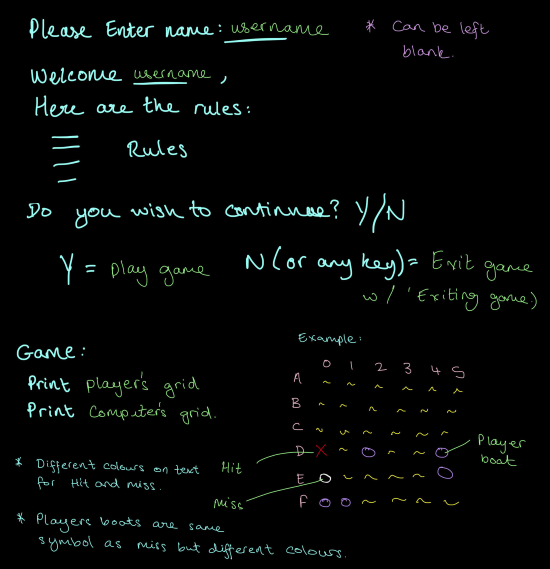 Please Enter name: username * Can be left
blank.
Welcome username ,
Here are the rules:
Rules
Do you wish to continue? Y/N
Y = Play game N (or any key) = Exit game
w/ 'Exiting game)
Game:
Print player's grid
Print Computer's grid.
* Different colours on text
for Hit and miss.
* Players boats are same
symbol as miss but different colours.
Example:
0 1 2 3 4 5
A ~ ~ ~ ~ ~ ~
B ~ ~ ~ ~ ~ ~
C ~ ~ ~ ~ ~ ~
D X ~ O ~ ~ O
E O ~ ~ ~ ~ O
F O O ~ ~ ~ ~
Hit
Miss
Player
boat